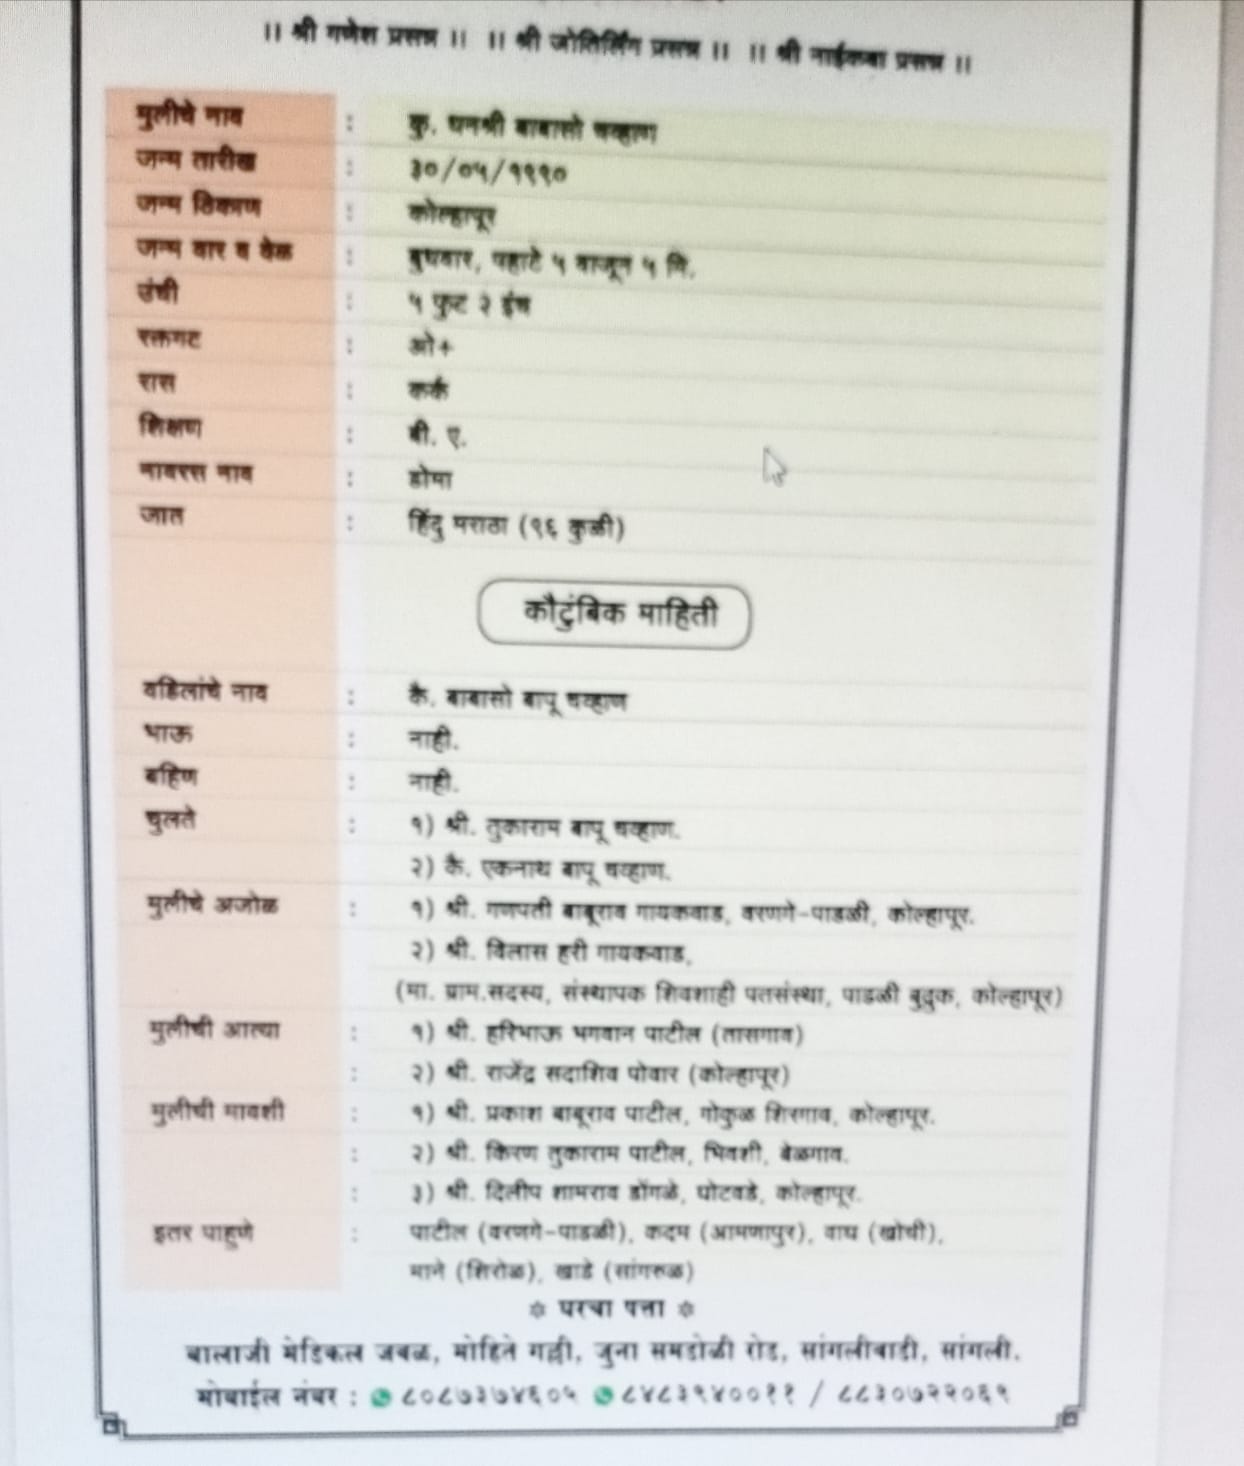 ।। श्री गणेश प्रसन्न ।। ।। श्री जोतिर्लिंग प्रसन्न ।। ।। श्री नाईकबा प्रसन्न ।।
मुलीचे नाव : कु. धनश्री बाबासो चव्हाण
जन्म तारीख : ३०/०५/१९९०
जन्म ठिकाण : कोल्हापूर
जन्म वार व वेळ : बुधवार, पहाटे ५ वाजून ५ मि.
उंची : ५ फुट २ इंच
रक्तगट : ओ+
रास : कर्क
शिक्षण : बी. ए.
नावरस नाव : डोमा
जात : हिंदु मराठा (९६ कुळी)
कौटुंबिक माहिती
वडिलांचे नाव : कै. बाबासो बापू चव्हाण
भाऊ : नाही.
बहिण : नाही.
चुलते : १) श्री. तुकाराम बापू चव्हाण.
२) कै. एकनाथ बापू चव्हाण.
मुलीचे अजोळ : १) श्री. गणपती बाबूराव गायकवाड, वरणगे-पाडळी, कोल्हापूर.
२) श्री. विलास हरी गायकवाड,
(मा. ग्राम.सदस्य, संस्थापक शिवशाही पतसंस्था, पाडळी बुद्रुक, कोल्हापूर)
मुलीची आत्या : १) श्री. हरिभाऊ भगवान पाटील (तासगाव)
: २) श्री. राजेंद्र सदाशिव पोवार (कोल्हापूर)
मुलीची मावशी : १) श्री. प्रकाश बाबूराव पाटील, गोकुळ शिरगाव, कोल्हापूर.
: २) श्री. किरण तुकाराम पाटील, भिवशी, बेळगाव.
: ३) श्री. दिलीप शामराव डोंगळे, घोटवडे, कोल्हापूर.
इतर पाहुणे : पाटील (वरणगे-पाडळी), कदम (आमणापुर), वाघ (खोची),
माने (शिरोळ), खाडे (सांगरुळ)
घरचा पत्ता
बालाजी मेडिकल जवळ, मोहिते गल्ली, जुना समडोळी रोड, सांगलीवाडी, सांगली.
मोबाईल नंबर : ८०८७३७४६०५ ८४८३९४००११ / ८८३०७२२०६९